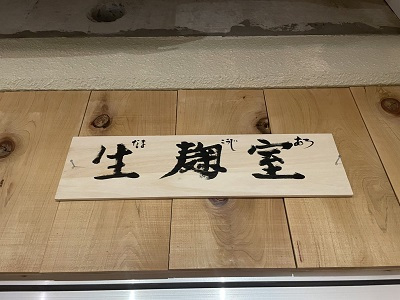 なま こうじ むろ
生麹室